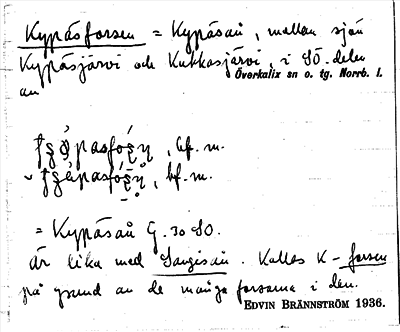 Kypäsforsen = Kypäsån, mellan sjön
Kyppäsjärvi och Kukkasjärvi, i SO. delen
Överkalix sn o. tg. Norrb. l.
av
, bf. m.
, bf. m.
= Kyppäsån G. 30 SO.
är lika med Sangisån. Kallas K-forsen
på grund av de många forsarna i den.
EDVIN BRÄNNSTRÖM 1936.